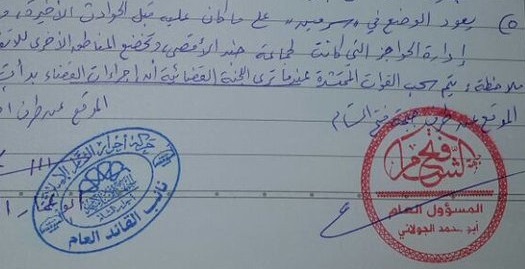 ⑤ يعود الوضع في "سرمين" على ما كان عليه قبل الحوادث الأخيرة،
إدارة الحواجز التي كانت لجماعة جند الأقصى، وتخضع المناطق الأخرى
ملاحظة: يتم سحب القوات المحتشدة عندما ترى اللجنة القضائية أن إجراءات القضاء بدأت
الموقع عن طرف جبهة فتح الشام
الموقع عن طرف
فتح الشام
المسؤول العام
أبو محمد الجولاني
حركة أحرار الشام الإسلامية
نائب القائد العام